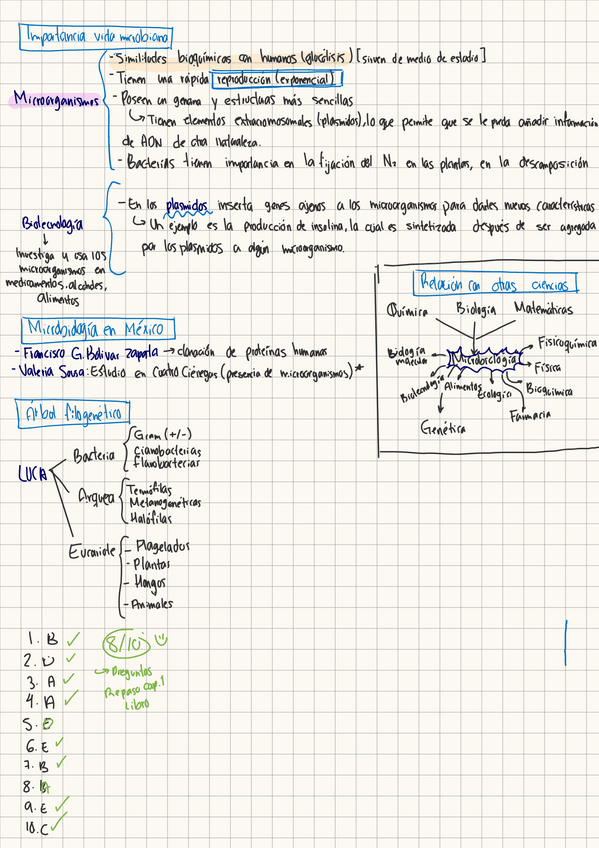 Importancia vida microbiana
- Similitudes bioquímicas con humanos (glucólisis) [sirven de medio de estudio]
- Tienen una rápida reproducción (exponencial)
Microorganismos
- Poseen un genoma y estructuras más sencillas
↳ Tienen elementos extracromosomales (plásmidos), lo que permite que se le pueda añadir información
de ADN de otra naturaleza.
- Bacterias tienen importancia en la fijación del N₂ en las plantas, en la descomposición
- En los plásmidos inserta genes ajenos a los microorganismos para darles nuevas características
Biotecnología
↳ Un ejemplo es la producción de insulina, la cual es sintetizada después de ser agregada
por los plásmidos a algún microorganismo.
Investiga y usa los
microorganismos en
medicamentos, alcoholes,
alimentos
Relación con otras ciencias
Química Biología Matemáticas
Fisicoquímica
Biología
molecular
Microbiología
Física
Biotecnología Alimentos Ecología Bioquímica
Farmacia
Genética
Microbiología en México
- Francisco G. Bolívar Zapata → clonación de proteínas humanas
- Valeria Souza: Estudio en Cuatro Ciénegas (presencia de microorganismos) *
Árbol filogenético
LUCA
Bacteria
Gram (+/-)
Cianobacterias
Flavobacterias
Arquea
Termófilas
Metanogenéticas
Halófilas
Eucarionte
- Flagelados
- Plantas
- Hongos
- Animales
1. B ✓
2. D ✓
3. A ✓
4. A ✓
5.
6. E ✓
7. B ✓
8.
9. E ✓
10. C ✓
8/10
↳ Preguntas
Repaso cap. 1
Libro